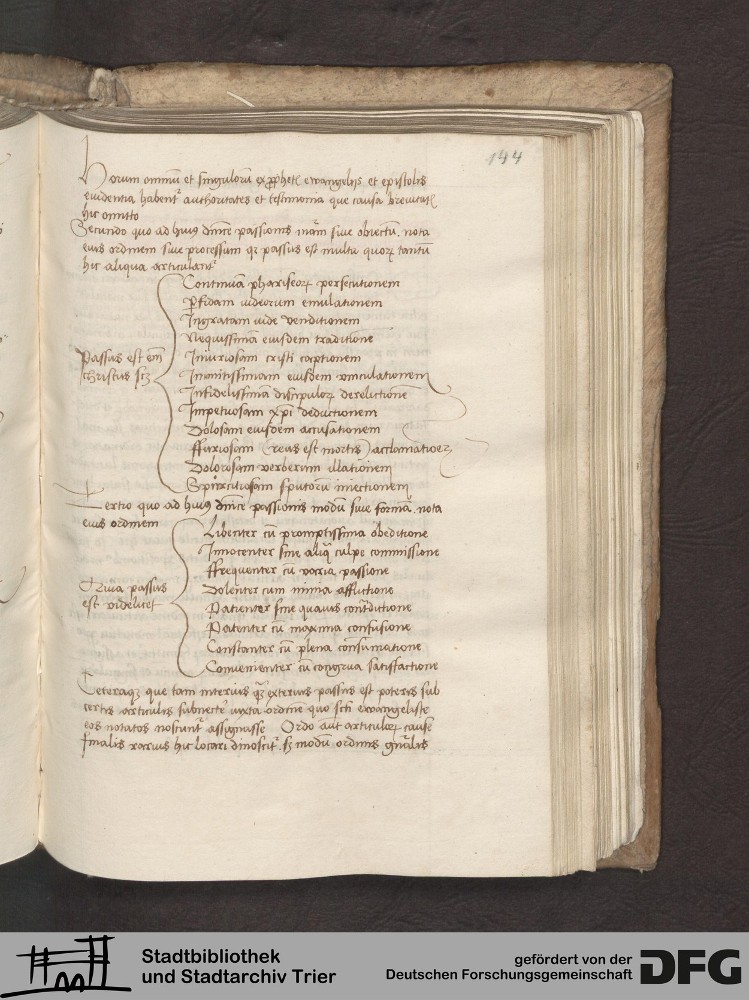 144
Horum omniū et singulorū ex prophetis ewangelijs et epistolis
euidentia habentr authoritates et testimonia que causa breuitatis
hic omitto
Secundo quo ad huiꝰ dnice passionis māam siue obiectū. nota
eius ordinem siue processum qr passus est multa quorꝝ tantū
hic aliqua articulantr
Passus est em̄
christus scz
Continuā phariseorꝝ persecutionem
Pfidam iudeorum emulationem
Ingratam iude venditionem
Nequissimā eiusdem traditionē
Iniuriosam cristi captionem
Inmitissimam eiusdem vinculationem
Infidelissimā discipulorꝝ derelictionē
Impetuosam xpi deductionem
Dolosam eiusdem accusationem
ffuriosam (reus est mortis) acclamationeꝫ
Dolorosam verberum illationem
Spurcitiosam sputorū iniectionem
Tertio quo ad huiꝰ dnice passionis modū siue formā. nota
eius ordinem
Quia passus
est videlicet
Libenter cū promptissima obeditione
Innocenter sine aliqᵃ culpe commissione
ffrequenter cū varia passione
Dolenter cum nimia afflictione
Patienter sine quauis cont̄dictione
Patenter cū maxima confusione
Constanter cū plena consumatione
Conuenienter cū congrua satisfactione
Ceteraqꝫ que tam interius qᵃꝫ exterius passus est poteris sub
certis articulis subnecte iuxta ordinē quo scti ewangeliste
eos notatos noscuntr assignasse Ordo aut articulorꝝ cause
finalis rarius hic locari dinoscitr. sz modū ordinis gn̄alis
Stadtbibliothek
und Stadtarchiv Trier
gefördert von der
Deutschen Forschungsgemeinschaft
DFG